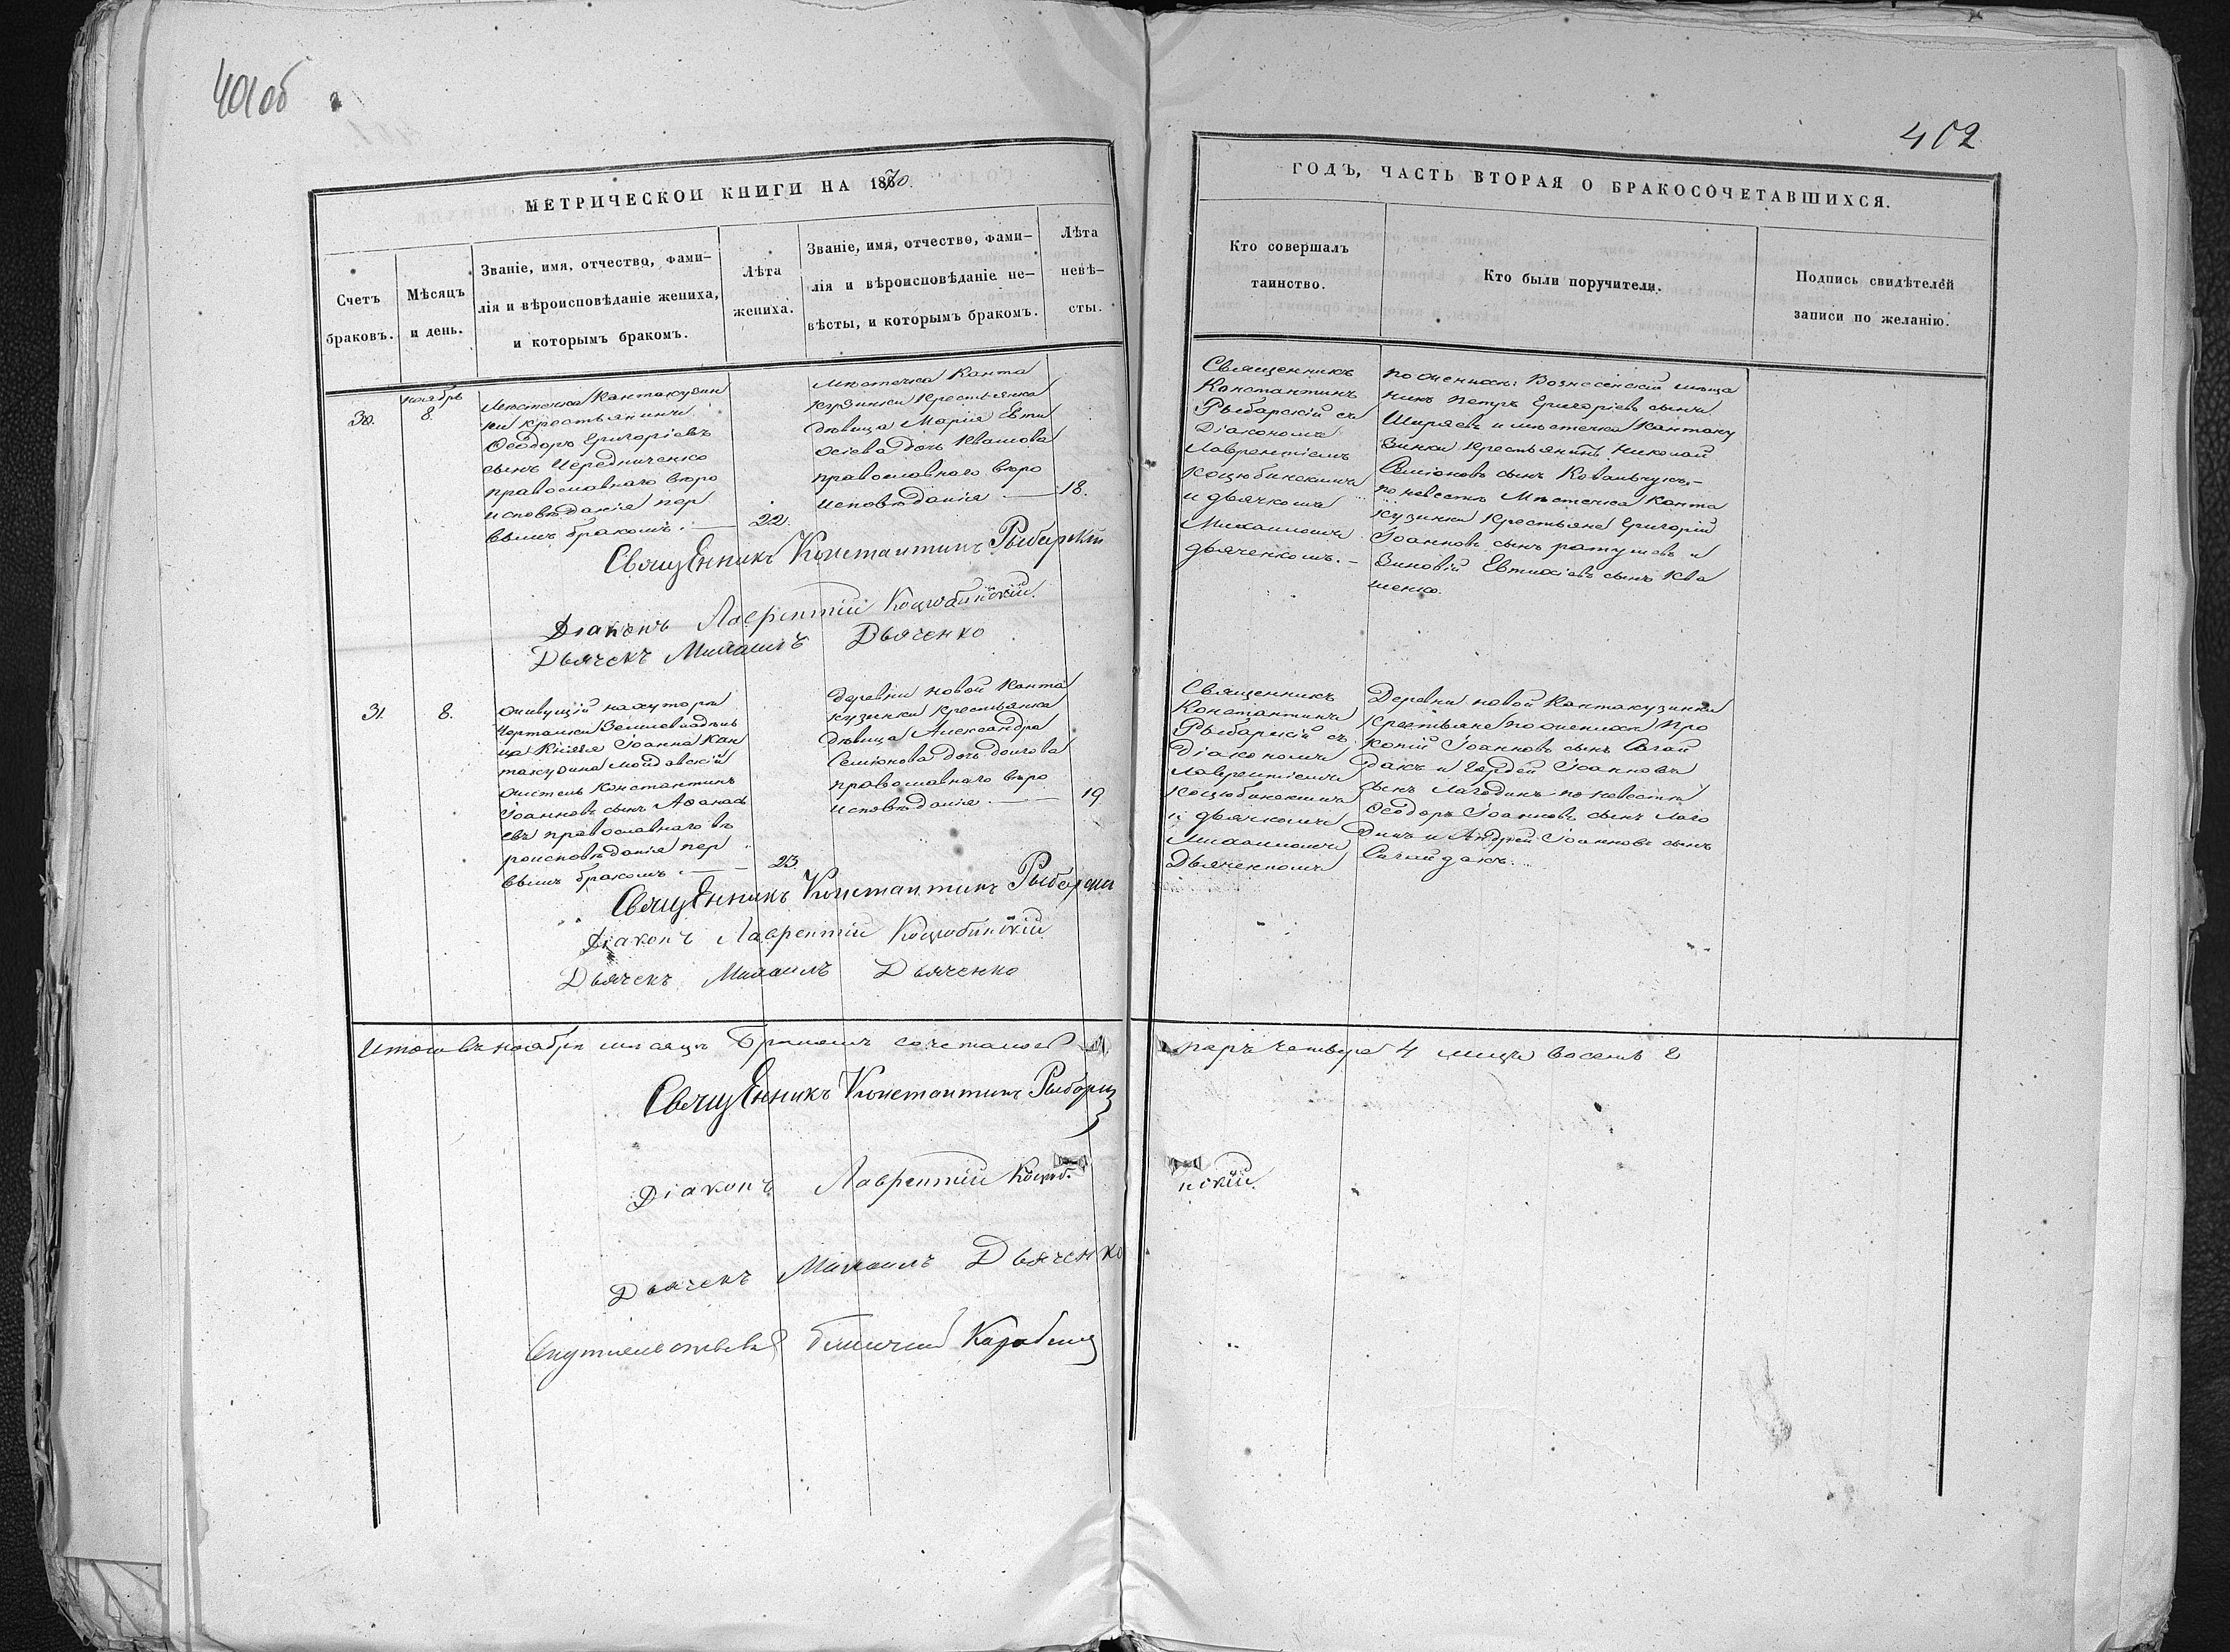 401об
402
МЕТРИЧЕСКОЙ КНИГИ НА 1870.
ГОДЪ, ЧАСТЬ ВТОРАЯ О БРАКОСОЧЕТАВШИХСЯ.
Счетъ
браковъ.
Мѣсяцъ
и день.
Званіе, имя, отчество, фами-
лія и вѣроисповѣданіе жениха,
и которымъ бракомъ.
Лѣта
жениха.
Званіе, имя, отчество, фами-
лія и вѣроисповѣданіе не-
вѣсты, и которымъ бракомъ.
Лѣта
невѣ-
сты.
Кто совершалъ
таинство.
Кто были поручители.
Подпись свидѣтелей
записи по желанію.
30.
ноябрь
8.
Мѣстечка Кантакузин
ки крестьянинъ
Ѳеодоръ Григоріевъ
сынъ Чередниченко
православнаго вѣро
исповѣданія пер
вымъ бракомъ. —
22.
Мѣстечка Канта
кузинки крестьянка
дѣвица Марія Евти
хіева дочь Квашова
православнаго вѣро
исповѣданія. —
18.
Священникъ
Константинъ
Рыбарскій съ
Діакономъ
Лаврентіемъ
Коцюбинскимъ
и дьячкомъ
Михаиломъ
Дьяченкомъ. –
по женихѣ: Вознесенскій мѣща
нинъ Петръ Григоріевъ сынъ
Ширяевъ и мѣстечка Кантаку
зинки крестьянинъ Николай
Симіоновъ сынъ Ковальчукъ, –
по невестѣ Мѣстечка Канта
кузинки крестьяне Григорій
Іоанновъ сынъ ратушевъ и
Зиновій Евтихіевъ сынъ Ква
шенко.
Священникъ Константинъ Рыбарскій
Діаконъ Лаврентій Коцюбинскій.
Дьячекъ Михаилъ Дьяченко
31.
8.
живущій на хуторѣ
Чертамки Землевладѣль
ца Князя Іоанна Кан
такузина молдавскій
житель Константинъ
Іоанновъ сынъ Аѳанась
евъ православнаго вѣ
роисповѣданія пер
вымъ бракомъ. —
23.
деревни новой Канта
кузинки крестьянка
дѣвица Александра
Симіонова дочь Долгова
православнаго вѣро
исповѣданія. —
19
Священникъ
Константинъ
Рыбарскій съ
Діакономъ
Лаврентіемъ
Коцюбинскимъ
и дьячкомъ
Михаиломъ
Дьяченкомъ
Деревни новой Кантакузинки
крестьяне по женихѣ Про
копій Іоанновъ сынъ Сагай
дакъ и Гордей Іоанновъ
сынъ Лагодинъ по невестѣ
Ѳеодоръ Іоанновъ сынъ Лаго
динъ и Андрей Іоанновъ сынъ
Сагайдакъ.
Священникъ Константинъ Рыбарскій
Діаконъ Лаврентій Коцюбинскій
Дьячекъ Михаилъ Дьяченко
Итого въ ноябрѣ мѣсяцѣ Бракомъ сочеталось паръ четыре 4 лицъ восемь 8
Священникъ Константинъ Рыбарскій
Діаконъ Лаврентій Коцюб. нскій.
Дьячекъ Михаилъ Дьяченко